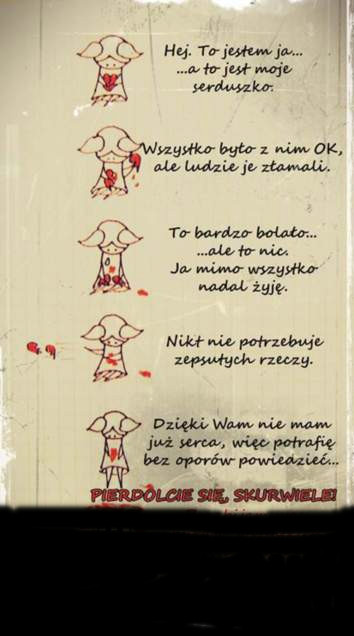 Hej. To jestem ja...
...a to jest moje
serduszko.
Wszystko było z nim OK,
ale ludzie je złamali.
To bardzo bolało...
...ale to nic.
Ja mimo wszystko
nadal żyję.
Nikt nie potrzebuje
zepsutych rzeczy.
Dzięki Wam nie mam
już serca, więc potrafię
bez oporów powiedzieć...
PIERDOLCIE SIĘ, SKURWIELE!